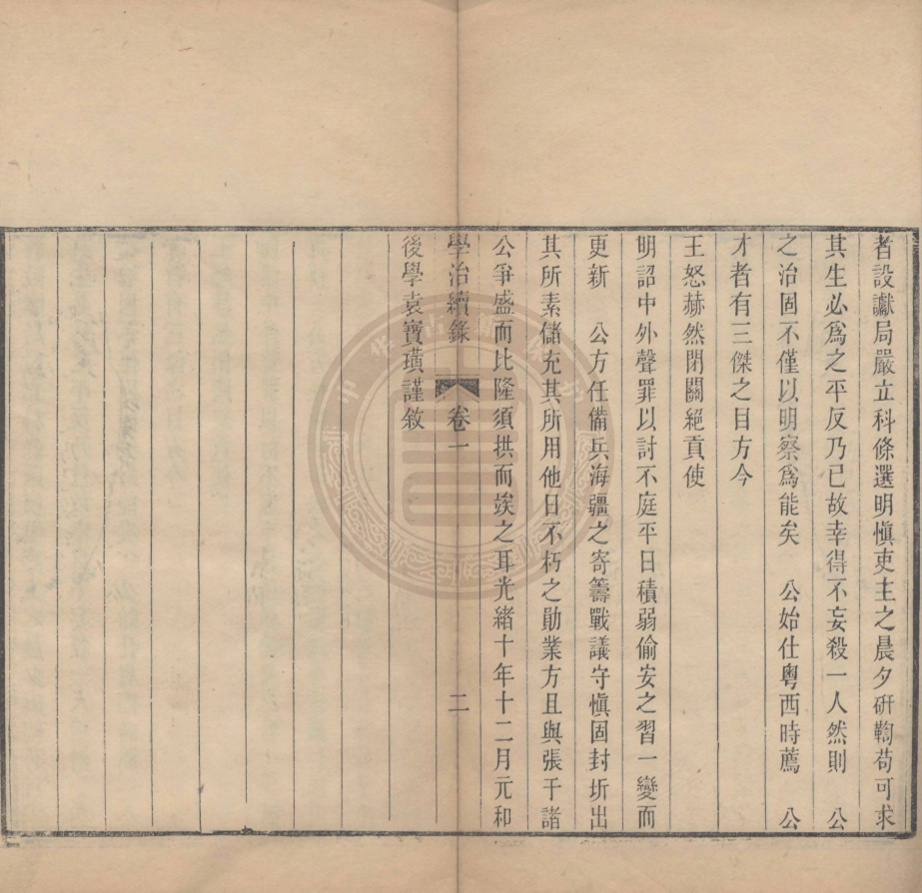 者設讞局嚴立科條選明愼吏主之晨夕硏鞫苟可求
其生必爲之平反乃已故幸得不妄殺一人然則　公
之治固不僅以明察爲能矣　公始仕粤西時薦　公
才者有三傑之目方今
王怒赫然閉關絕貢使
明詔中外聲罪以討不庭平日積弱偷安之習一變而
更新　公方任備兵海疆之寄籌戰議守愼固封圻出
其所素儲充其所用他日不朽之勛業方且與張于諸
公爭盛而比隆須拱而竢之耳光緒十年十二月元和
學治續錄　卷一　二
後學袁寶璜謹敘